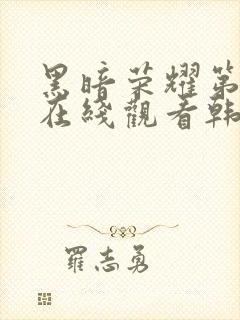 黑暗荣耀第
在綫觀看韩
羅志勇